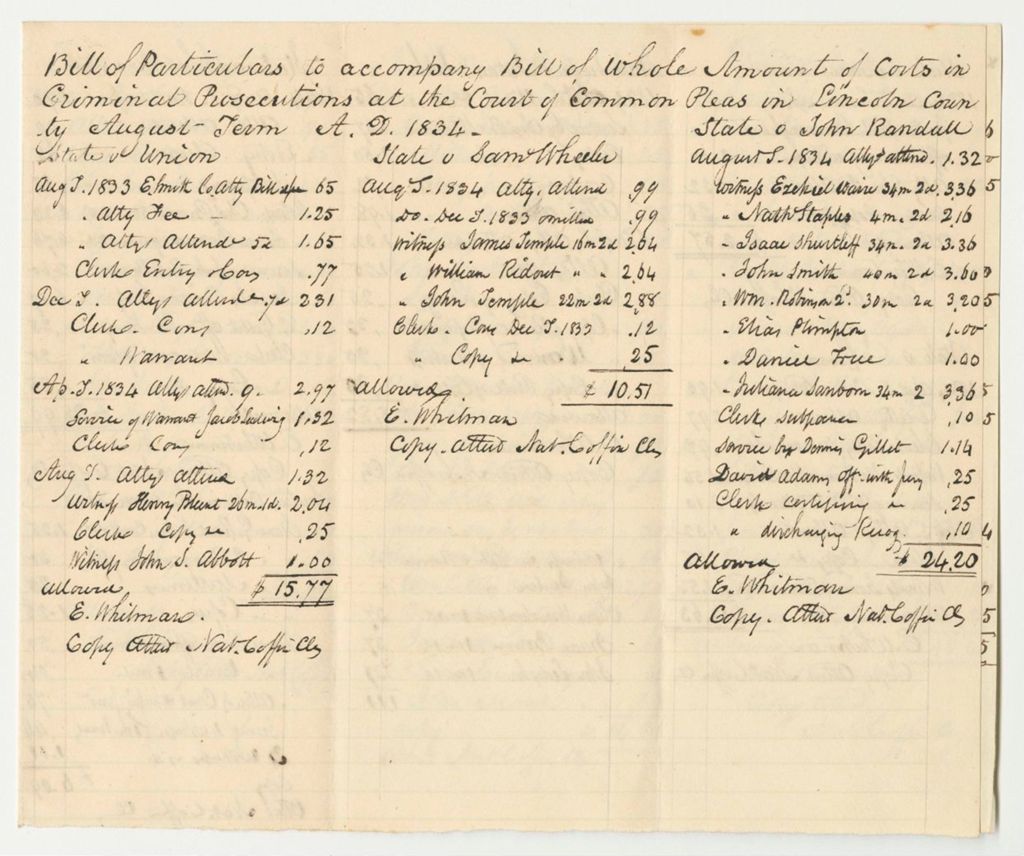 Bill of Particulars to accompany Bill of Whole Amount of Costs in
Criminal Prosecutions at the Court of Common Pleas in Lincoln Coun
ty August Term A. D. 1834 -
State v Union
Aug T. 1833 E. Smith Co Atty Bill 65
" Atty Fee - 1.25
" Attys Attendce 5d 1.65
Clerk Entry & Con .77
Dec T. Attys attendce 7d 2.31
Clerk. Con ,12
" Warrant
Ap. T. 1834 Attys attnd. 9. 2.97
Service of Warrant Jacob Ludwig 1.32
Clerk Con ,12
Aug T. Attys attend 1.32
Witness Henry Blunt 26m. 1d. 2.04
Clerk Copy &c ,25
Witness John S. Abbott 1.00
allowed $ 15.77
E. Whitman.
Copy Attest Nat. Coffin Clk
State v Saml Wheeler
Aug T. 1834 Atty. Attend .99
Do. Dec T. 1833 omitted .99
Witness James Temple 16m 2d 2.64
" William Ridout " " 2.64
" John Temple 22m 2d 2.88
Clerk. Con Dec T. 1833 .12
" Copy &c . 25
allowed. $ 10.51
E. Whitman
Copy. Attest Nat. Coffin Clk
State v John Randall
August T. 1834 Attys attend. 1.32
Witness Ezekiel Ware 34m 2d. 3.36
" Nathl Staples 4m. 2d 2.16
" Isaac Shurtleff 34m. 2d 3.36
" John Smith 40m 2d 3.60
" Wm. Robinson 2d. 30m 2d 3.20
" Elias Plimpton 1.00
" Daniel True 1.00
" Juliana Sanborn 34m 2 3.36
Clerk subpoenas ,10
Service by Dennis Gillet 1.14
David Adams off. with Jury ,25
Clerk certifying &c ,25
" discharging Recog. ,10
allowed $ 24.20
E. Whitman
Copy. Attest Nat. Coffin Clk